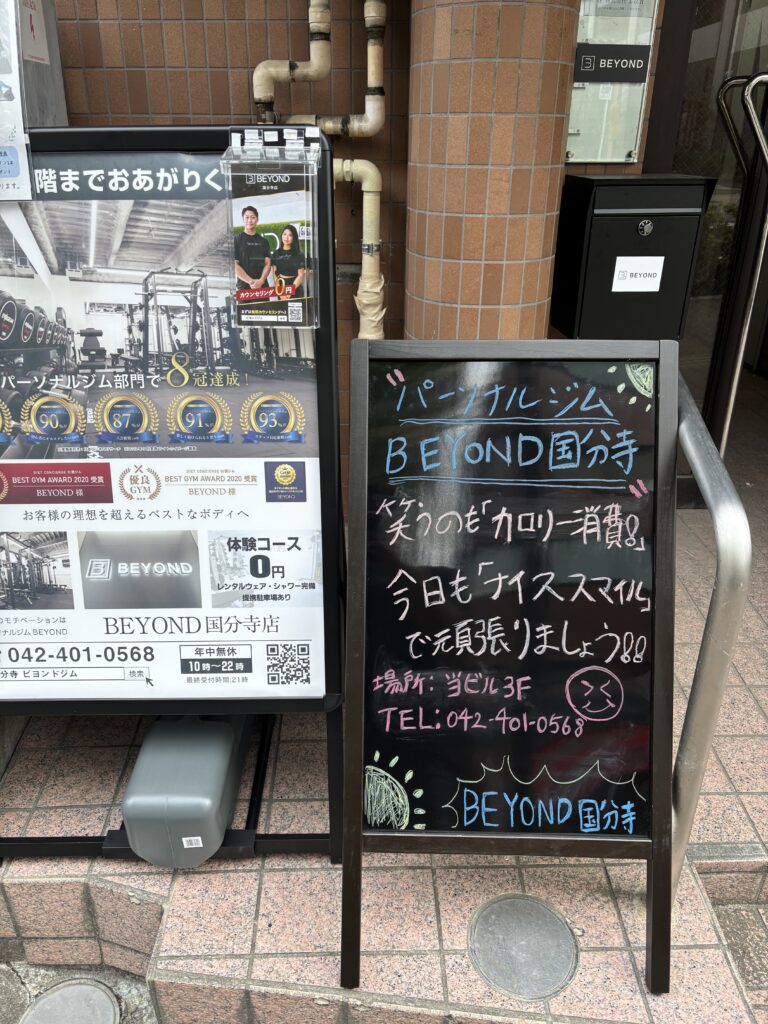 階までおあがりく
BEYOND
国分寺店
カウンセリング0円
パーソナルジム部門で8冠達成!
90%
87%
91%
93%
DIET CONCIERGE
BEST GYM AWARD 2020 受賞
BEYOND 様
優良
GYM
BEST GYM AWARD 2020 受賞
BEYOND 様
お客様の理想を超えるベストなボディへ
BEYOND
体験コース
0円
レンタルウェア・シャワー完備
提携駐車場あり
のモチベーションは
ナルジム BEYOND
BEYOND 国分寺店
042-401-0568
分寺 ビヨンドジム
検索
年中無休
10時〜22時
最終受付時間:21時
BEYOND
BEYOND
パーソナルジム
BEYOND国分寺
笑うのも「カロリー消費!」
今日も「ナイススマイル」
で頑張りましょう!!
場所:当ビル3F
TEL:042-401-0568
BEYOND国分寺